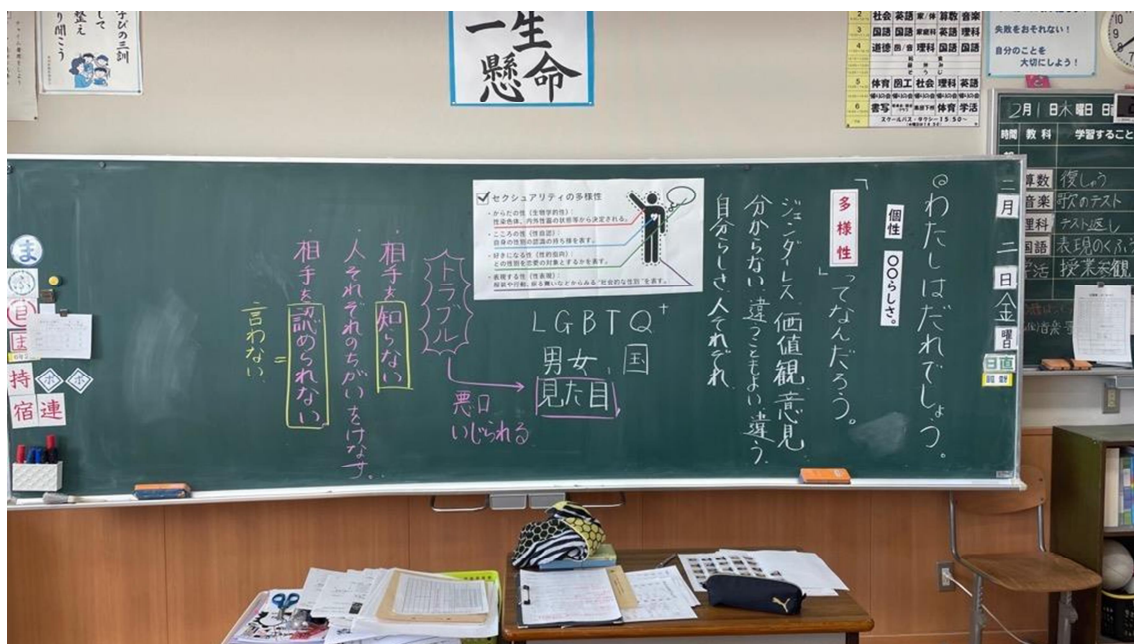 一生
懸命
失敗をおそれない！
自分のことを
大切にしよう！
社会 英語 算数 音楽
3 国語 国語 家庭科 英語 理科
4 道徳 図/音 理科 国語 国語
5 体育 図工 社会 理科 英語
6 書写 体育 学活
スクールバス・タクシー15:50～
2月1日木曜日
時間 教科 学習すること
算数 復しゅう
音楽 歌のテスト
理科 テスト返し
国語 表現のくふう
学活 授業参観
二月二日金曜
日直
◎わたしはだれでしょう。
個性
〇〇らしさ。
「多様性」ってなんだろう。
ジェンダーレス、価値観、意見
分からない、違うこともよい、違う、
自分らしさ、人それぞれ、
セクシュアリティの多様性
・からだの性（生物学的性）：
性染色体、内外性器の状態等から決定される。
・こころの性（性自認）：
自身の性別の認識の持ち様を表す。
・好きになる性（性的指向）：
どの性別を恋愛の対象とするかを表す。
・表現する性（性表現）：
服装や行動、振る舞いなどからみる“社会的な性別”を表す。
LGBTQ+
男女、国
見た目、
トラブル
悪口
いじられる
・相手を知らない
・人それぞれのちがいをけなす。
・相手を認められない
＝
言わない
ま
自
ま
持
ホ ホ
宿 連